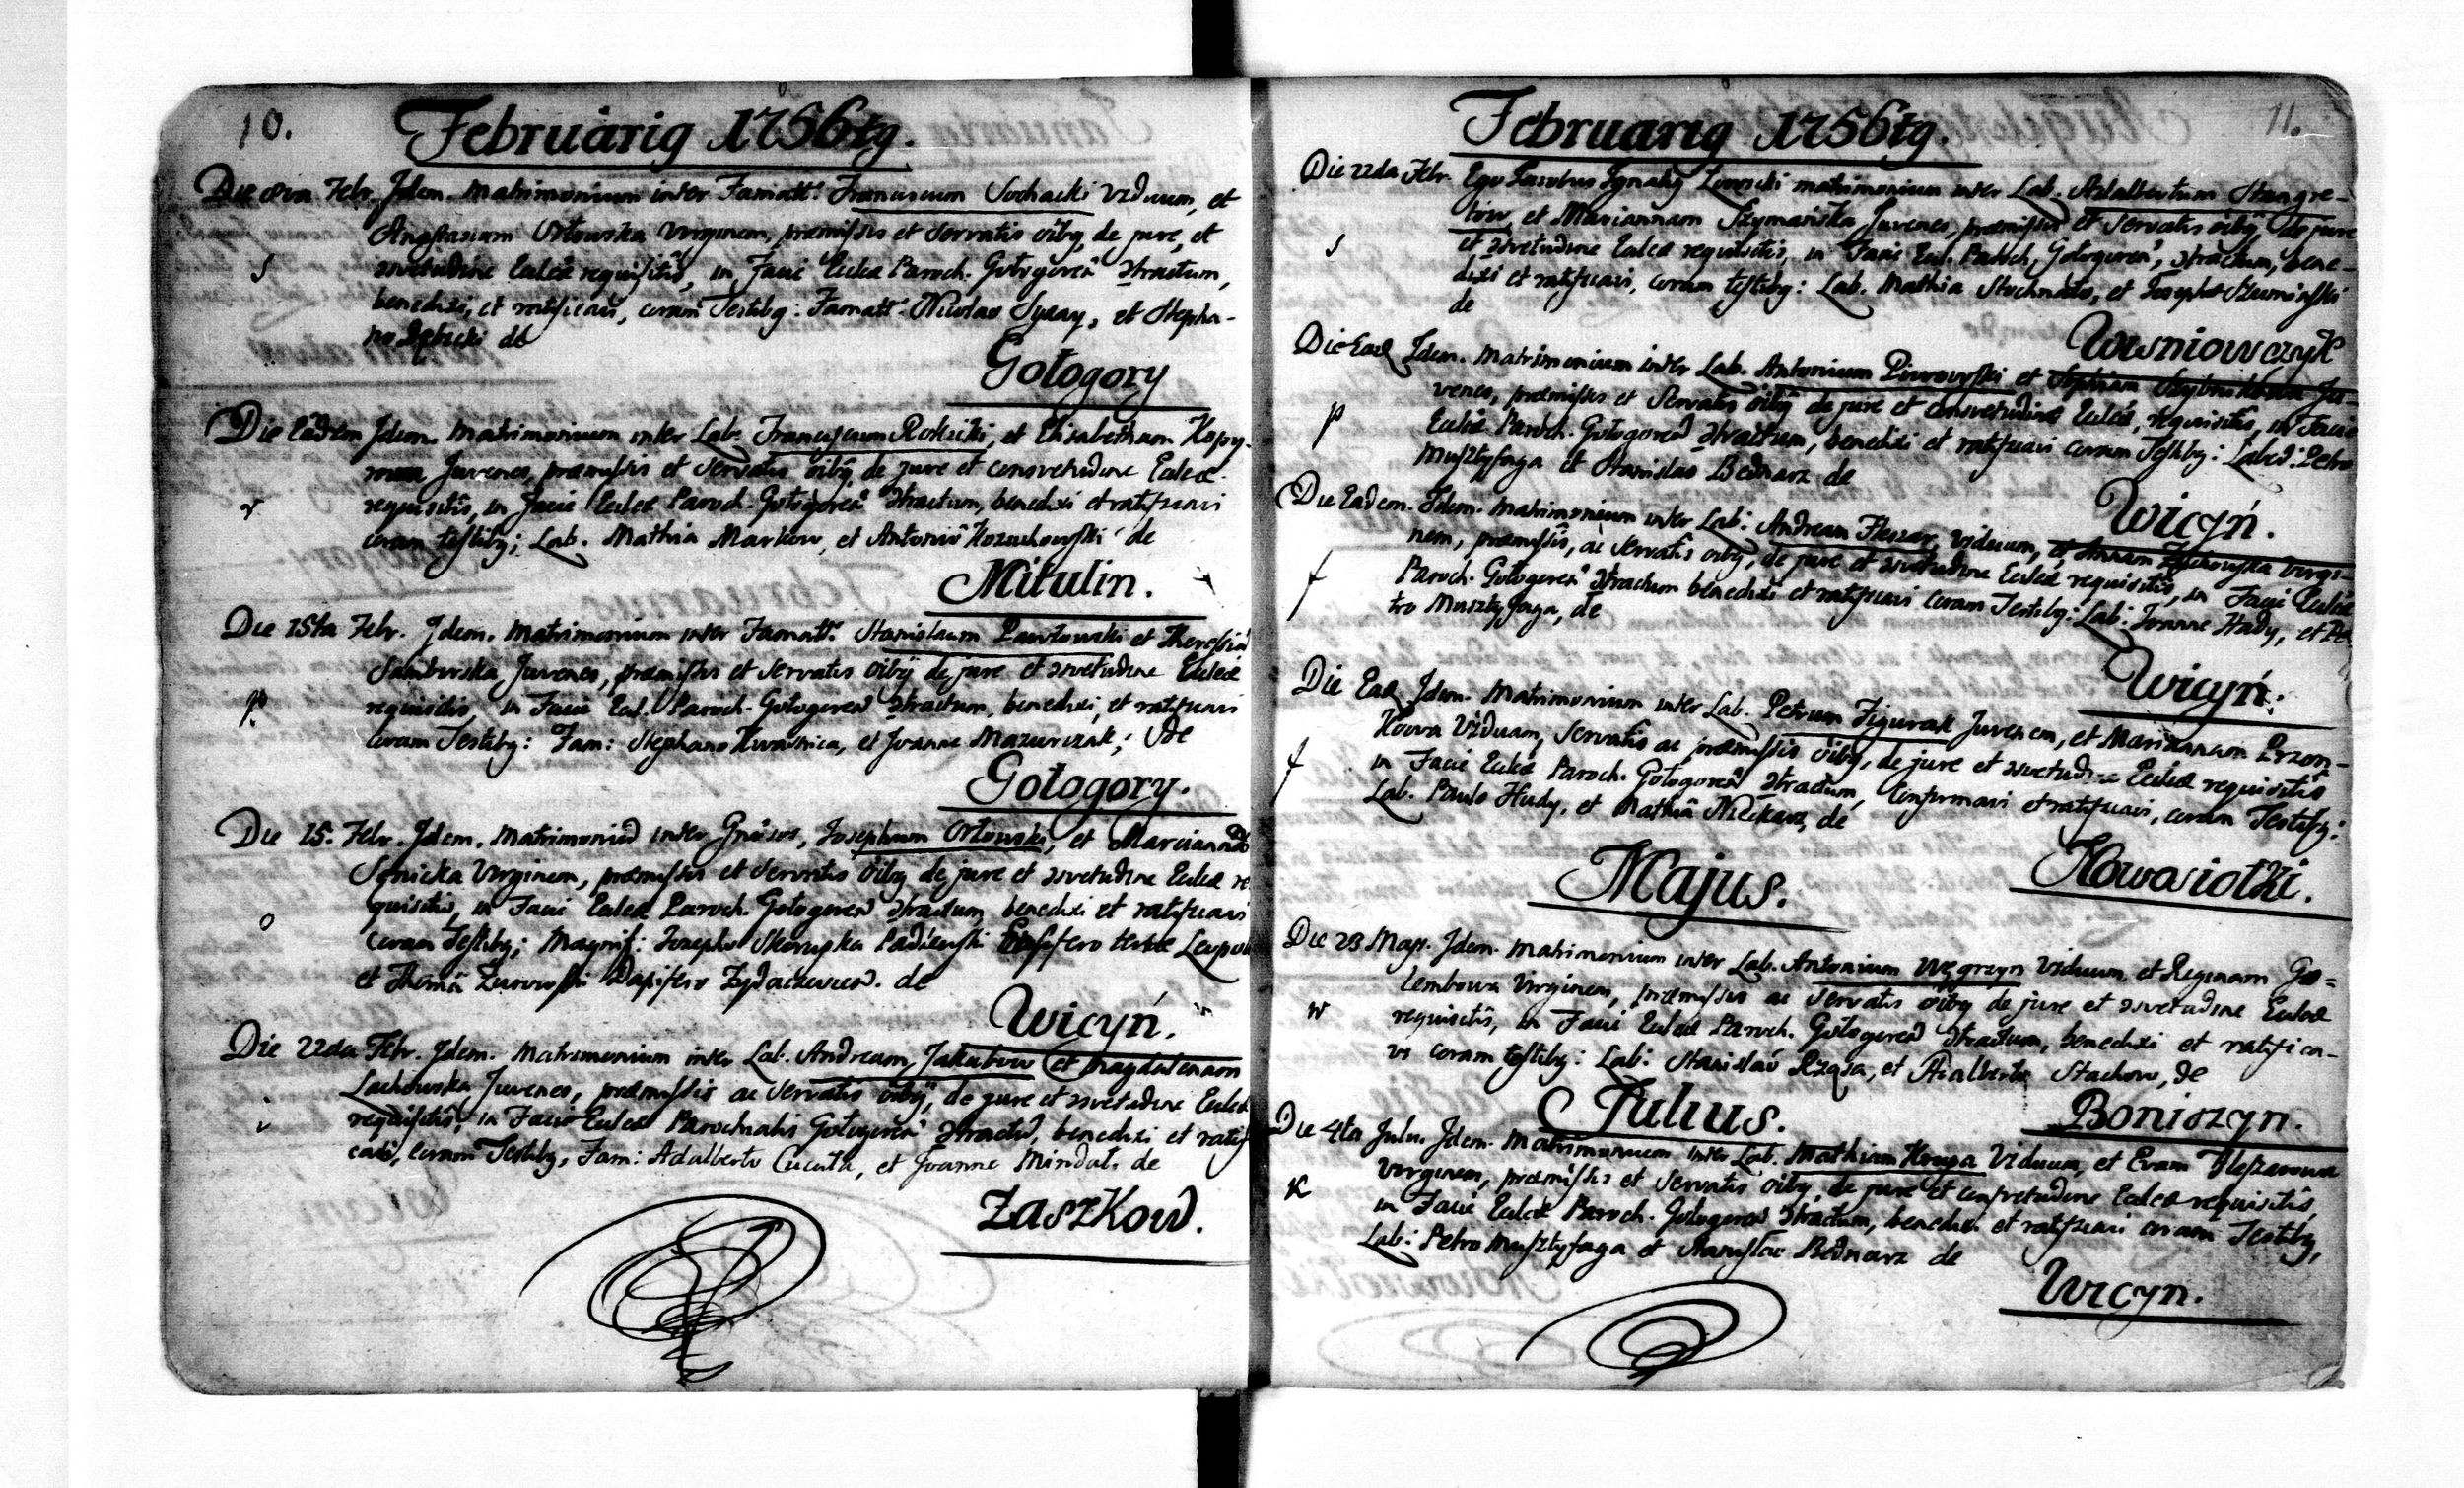 10.
Februarig 1756tg.
Die 8va Febr. Jdem. Matrimonium inter Famatt: Franciscum Sochacki Viduum, et
Anastasiam Orłowska Virginem, præmissis et Servatis oibg, de jure, et
svetudine Eccleæ requisitis, in Facie Eccleæ Paroch. Gołogoren stractum,
benedixi, et ratificavi, coram Testibg: Famatt: Nicolao Sysay, et Stepha-
no de
Gołogory
Die Eadem Jdem. Matrimonium inter Lab. Franciscum Rokicki, et Elisabetham Kopy-
Juvenes, præmissis et Servatis oibg, de jure et consvetudine Eccleæ
requisitis, in Facie Eccleæ Paroch. Gołogoren stractum, benedixi et ratificavi
r
coram testibg; Lab. Mathia Markow, et Antonio Kozuchowski de
Mitulin.
Die 15ta Febr. Jdem. Matrimonium inter Famatt: Stanislaum Pawłowski et Theresia
Samborska, Juvenes, præmissis et Servatis oibg de jure et svetudine Eccleæ
p
requisitis, in Facie Eccl. Paroch. Gołogoren stractum, benedixi, et ratificavi
Coram Testibg: Fam: Stephano Kwasnica, et Joanne Mazurczak; de
Gołogory.
Die 15. Febr. Jdem. Matrimoniu inter Gnosos, Josephum Orłowski, et Marcianna
Virginem, præmissis et Servatis oibg de jure et svetudine Eccleæ re
o
quisitis, in Facie Eccleæ Paroch. Gołogoren stractum, benedixi et ratificavi
coram Testibg; Magnif: Josepho Skorupka Padlewski terræ
et Thoma Zurowski Dapifero de
Wicyń.
Die 22da Febr. Jdem. Matrimonium inter Lab. Andream Jakubow et Magdalenam
Lachowska, Juvenes, præmissis ac Servatis oibg, de jure et svetudine Eccleæ
i
requisitis, in Facie Eccleæ Parochialis Gołogoren stractu, benedixi et ratifi
cavi, coram Testibg, Fam: Adalberto et Joanne Mindat. de
Zaszkow.
11.
Februarig 1756tg.
Die 22da Febr. Ego Jacobus Ignatig matrimonium inter Lab. Adalbertum Stangre-
tow, et Mariannam Szymańska Juvenes, præmissis et Servatis oibg, de jure
s
et svetudine Eccleæ requisitis, in Facie Eccl. Paroch. Gołogoren, stractum, bene-
dixi et ratificavi, coram testibg: Lab. Mathia et Josepho
de
Wisniowczyk
Die Ead Jdem. Matrimonium inter Lab. Antonium Piwowski et Ju-
venes, præmissis et Servatis oibg de jure et consvetudine Eccleæ, requisitis, in Facie
p
Eccleæ Paroch. Gołogoren stractum, benedixi et ratificavi coram Testibg: Labor: Petro
Musztyfaga et Stanislao Bednarz de
Wicyń.
Die Eadem. Jdem. Matrimonium inter Lab: Andream Fleszar, Viduum, et Annam Virgi-
nem, præmissis, ac Servatis oibg, de jure et svetudine Eccleæ requisitis, in Facie Eccleæ
f
Paroch. Gołogoren stractum benedixi et ratificavi coram Testibg: Lab: Joanne Hady, et Pe
tro Musztyfaga, de
Wicyń.
Die Ead Jdem. Matrimonium inter Lab. Petrum Figurak Juvenem, et Mariannam Przon-
kowa Viduam, Servatis ac præmissis oibg, de jure et svetudine Eccleæ requisitis
f
in Facie Eccleæ Paroch. Gołogoren stractum, Confirmavi et ratificavi, coram Testibg:
Lab. Paulo Hudy, et Mathia de
Nowosiołki.
Majus.
Die 23 Maji. Jdem. Matrimonium inter Lab. Antonium Węgrzyn Viduum, et Reginam Go=
lembowa Virginem, præmissis ac Servatis oibg de jure et svetudine Eccleæ
w
requisitis, in Facie Eccleæ Paroch. Gołogoren stractum, benedixi et ratifica-
vi coram testibg: Lab: Stanislao Rząsa, et Adalberto Stachow, de
Boniszyn.
Julius.
Die 4ta Julii. Jdem. Matrimonium inter Lab. Mathiam Krupa Viduum, et Evam Fleszarowa
Virginem, præmissis et Servatis oibg, de jure et consvetudine Eccleæ requisitis,
K
in Facie Eccleæ Paroch. Gołogoren stractum, benedixi et ratificavi coram Testibg,
Lab: Petro Musztyfaga et Stanislao Bednarz de
Wicyn.